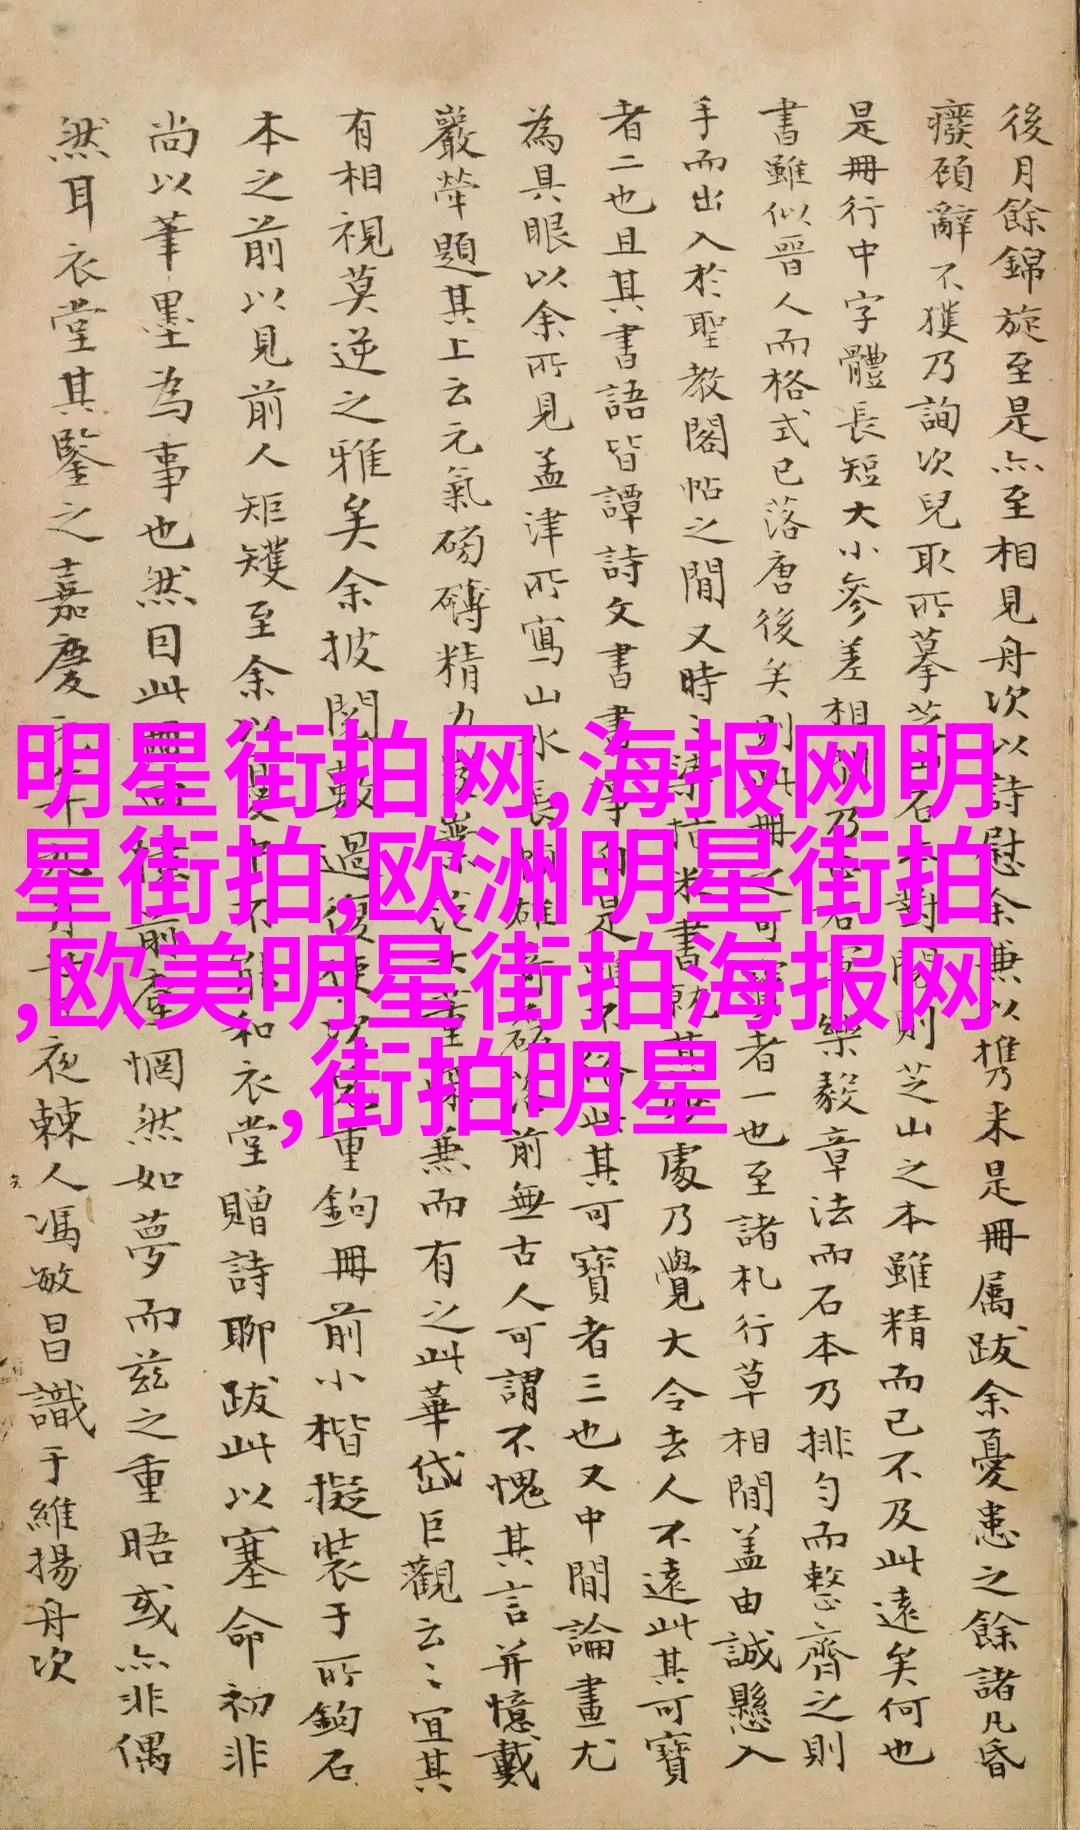 明星街拍网,海报网明
星街拍,欧洲明星街拍
,欧美明星街拍海报网
,街拍明星
後月餘錦旋至是亦至相見舟次以詩慰余兼以携来是冊属跋余憂患之餘諸凡昏
癈頋辭不獲乃詢次兒取所摹芝山石本對閱則芝山之本雖精而已不及此遠矣何也
是冊行中字體長短大小參差相別乃樂毅章法而石本乃排勻而整齊之則
書雖似晋人而格式已落唐後矣則此冊之可寶者一也至諸札行草相間盖由誠懸入
手而出入於聖教閣帖之間又時書就其處乃覺大令去人不遠此其可寶
者二也且其書語皆譚詩文書書事是不此其可寶者三也又中間論畫尤
為具眼以余所見孟津所寫山水長幀雄前無古人可謂不愧其言并憶戴
巖犖題其上云元氣磅礴精力兼而有之此華岱巨觀云〻宜其
有相視莫逆之雅矣余披閱數過復重鉤冊前小楷擬装于所鉤石
本之前以見前人矩矱至余以中不能和衣堂贈詩聊跋此以塞命初非
尚以筆墨為事也然因此前塵惘然如夢而兹之重晤或亦非偶
然耳衣堂其鑒之嘉慶元年月夜棘人馮敏昌識于維揚舟次